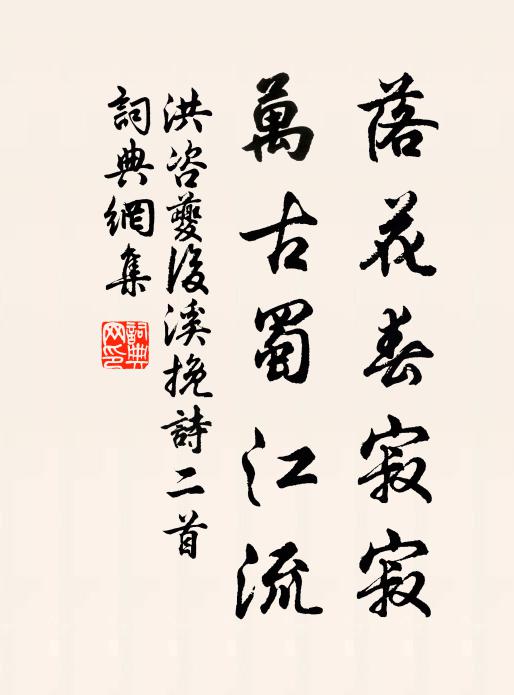 落花春寂寂
萬古蜀江流
洪咨夔後溪挽詩二首
詞典網集
詞典網印